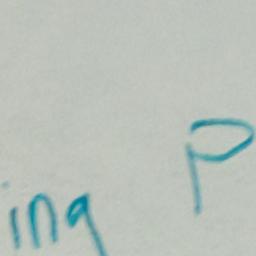 ing P